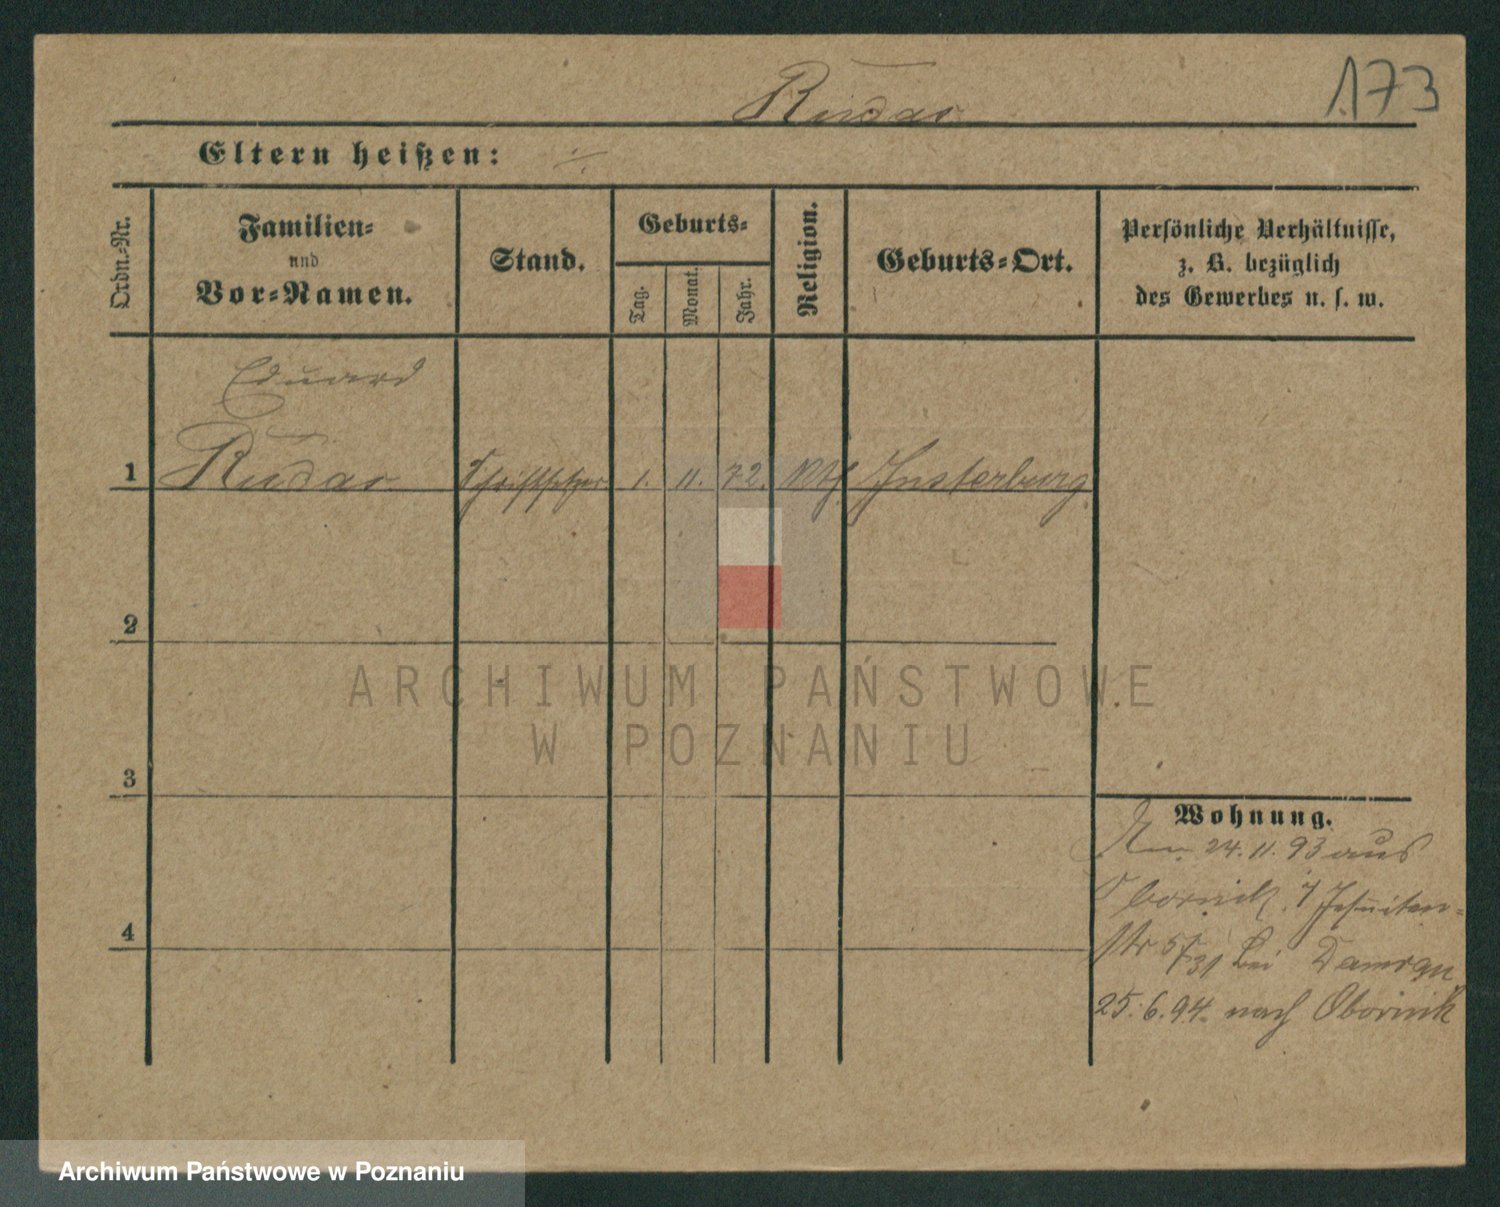 173
Rudar
Eltern heißen: -/-
Ordn.-Nr.
Familien-
und
Vor-Namen.
Stand.
Geburts-
Tag.
Monat.
Jahr.
Religion.
Geburts-Ort.
Persönliche Verhältnisse,
z. B. bezüglich
des Gewerbes u. s. w.
Eduard
1 Rudar Schriftsetzer 1. 11. 72. Insterburg
2
3
4
Wohnung.
24. 11. 93 aus
Obornik. Jesuiten-
str 5/31 bei
25. 6. 94. nach Obornik
ARCHIWUM PAŃSTWOWE
W POZNANIU
Archiwum Państwowe w Poznaniu